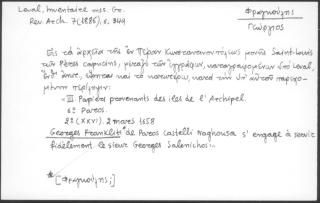 Laval, Inventaire mss. Gr.
Rev. Arch. 7 (1886), σ. 344
Φραγκούλης
Γεώργιος
Εἰς τὰ ἀρχεῖα τῆς ἐν Πέραν Κωνσταντινουπόλεως μονῆς Saint-Louis
τῶν Pères capucins, μεταξὺ τῶν ἐγγράφων, καταγραφομένων ὑπὸ Laval,
ἐνθ' ἀνωτ., καὶ τὸ κατωτέρω, κατὰ τὴν ὑπ' αὐτοῦ
περίληψιν:
«III. Papiers provenants des iles de l'Archipel.
6º Paros.
2º (XXVI). 2 mars 1658
Georges Franklits de Paros Castelli Naghousa s'engage à servir
fidèlement le sieur Georges Salenichos...
* [Φραγκούλης;]